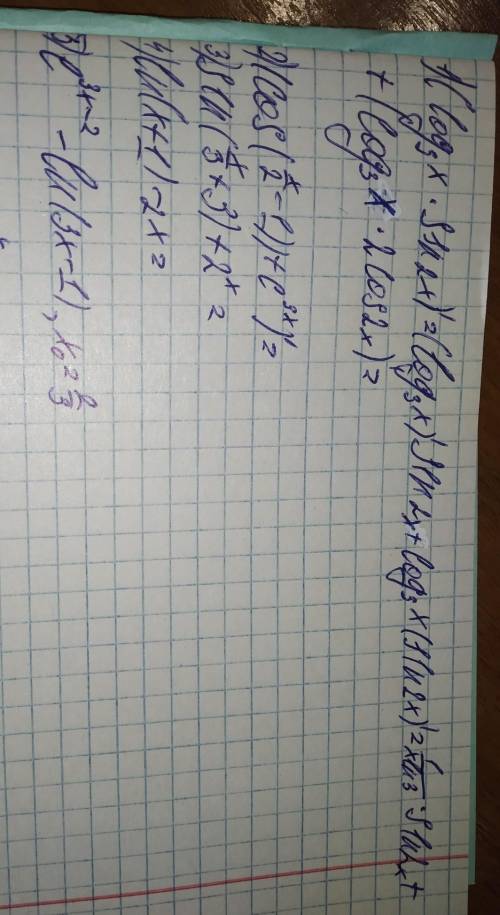 1) (log₃x · sin 2x)' = (log₃x)' sin 2x + log₃x (sin 2x)' = 1/(x ln 3) · sin 2x +
+ (log₃x · 2cos 2x) =
2) (cos(x/2 - 1) + e^(3x))' =
3) sin(x/3 + 3) + 2^x =
4) ln(x+1) - 2x =
5) e^(3x-2) - ln(3x-1), x₀ = 2/3